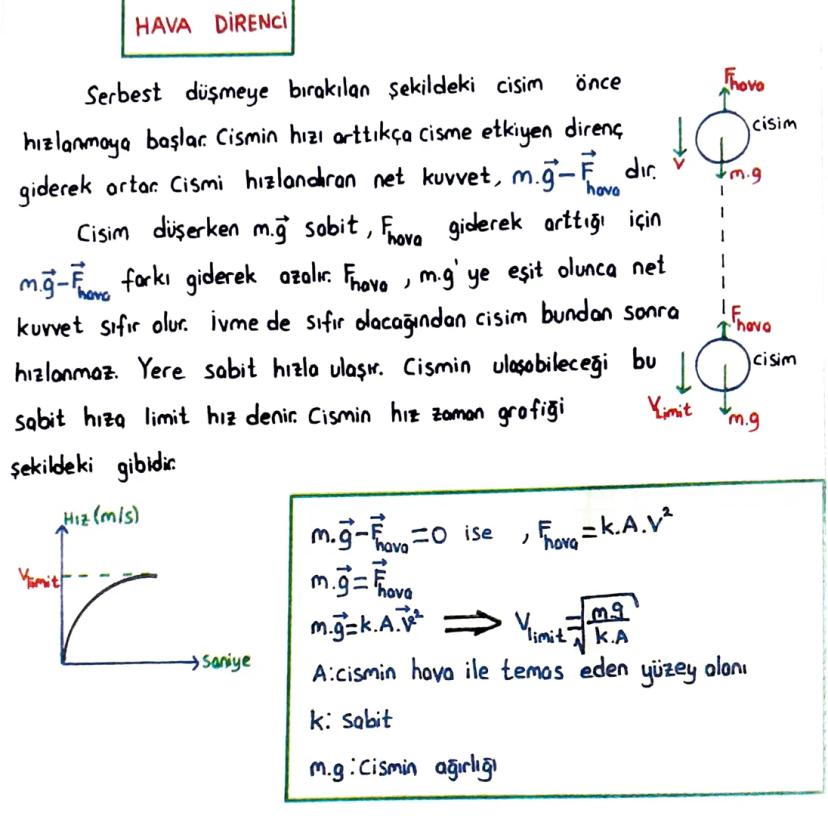 HAVA DİRENCİ
Serbest düşmeye bırakılan şekildeki cisim önce
hızlanmaya başlar. Cismin hızı arttıkça cisme etkiyen direnç
giderek artar. Cismi hızlandıran net kuvvet, m.g⃗-F⃗hava dır.
Cisim düşerken m.g⃗ sabit, Fhava giderek arttığı için
m.g⃗-F⃗hava farkı giderek azalır. Fhava, m.g' ye eşit olunca net
kuvvet sıfır olur. İvme de sıfır olacağından cisim bundan sonra
hızlanmaz. Yere sabit hızla ulaşır. Cismin ulaşabileceği bu
sabit hıza limit hız denir. Cismin hız zaman grafiği
şekildeki gibidir.
Fhava
cisim
v
m.g
Fhava
cisim
Vlimit
m.g
Hız (m/s)
Vlimit
Saniye
m.g⃗-F⃗hava=0 ise , Fhava=k.A.V²
m.g⃗=F⃗hava
m.g⃗=k.A.V⃗² ⟹ Vlimit=√(m.g/k.A)
A:cismin hava ile temas eden yüzey alanı
k: sabit
m.g:Cismin ağırlığı